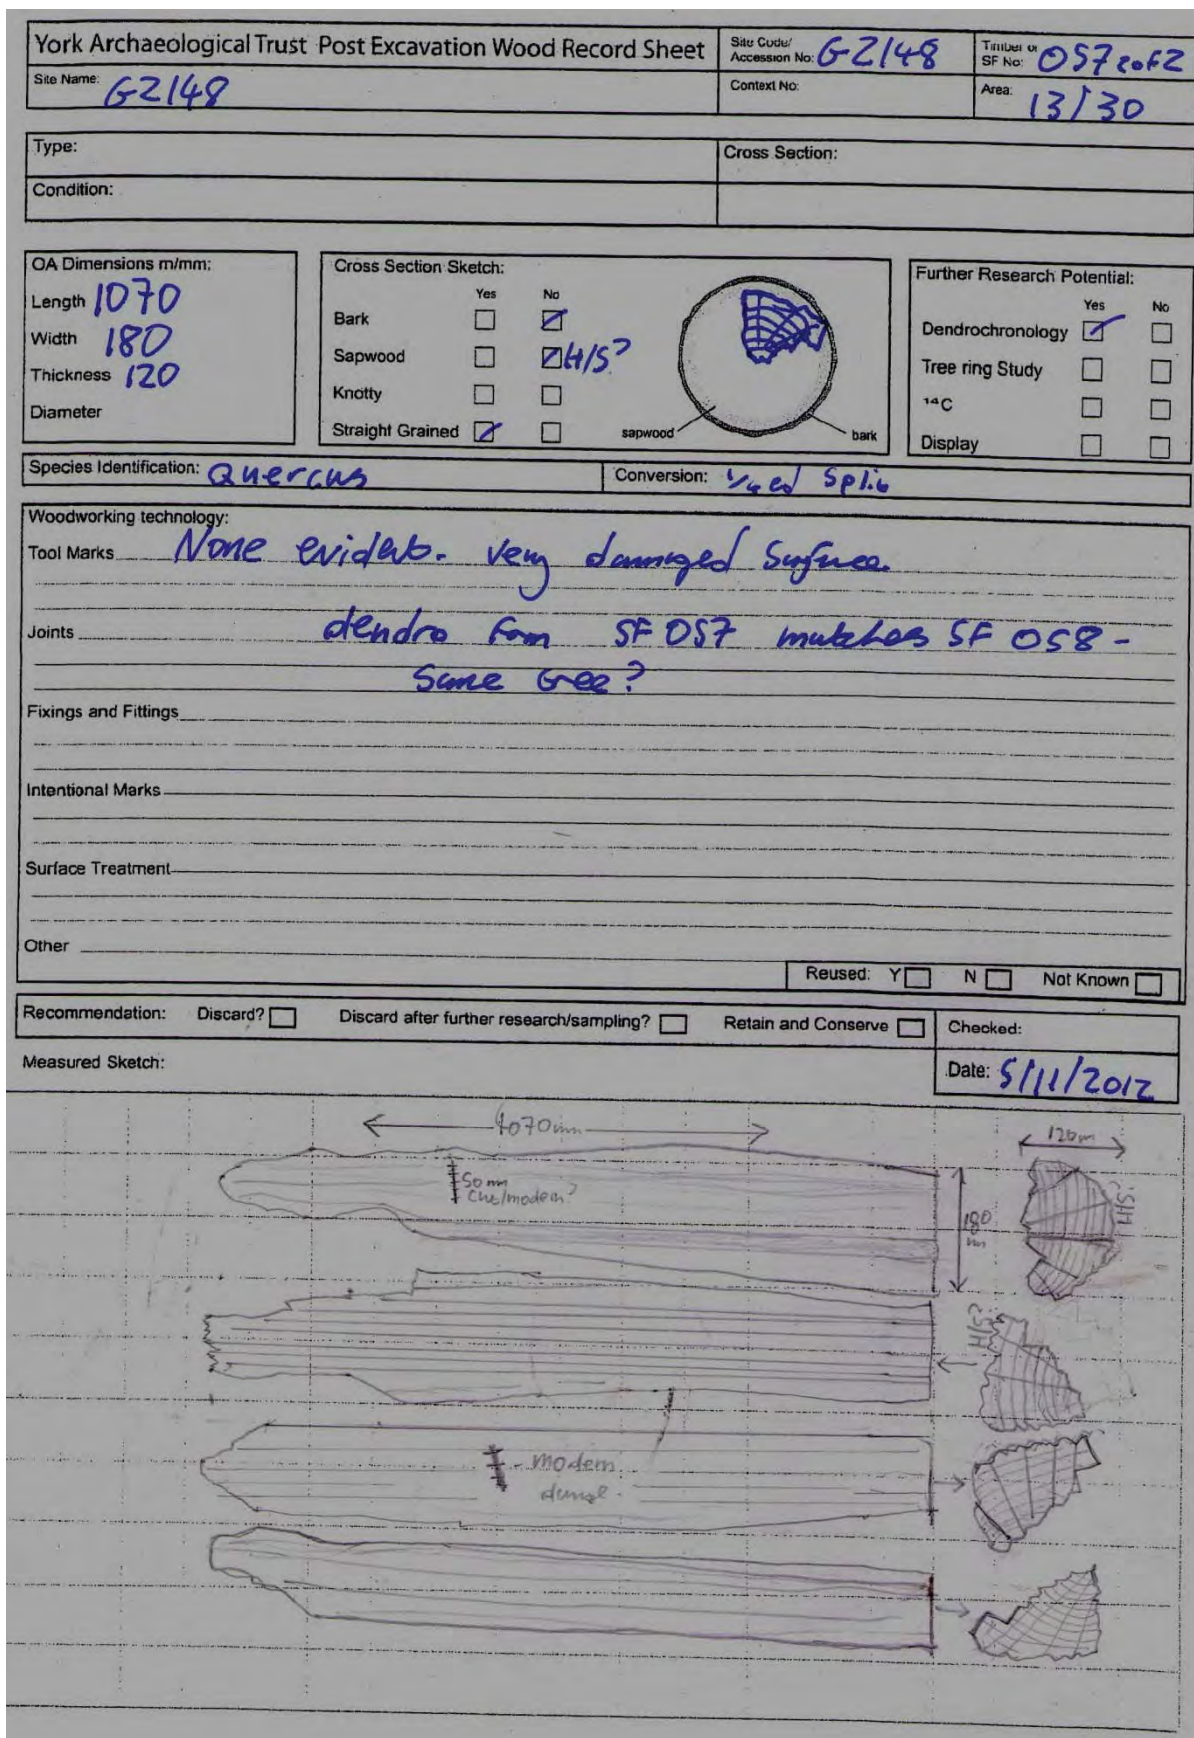 York Archaeological Trust Post Excavation Wood Record Sheet
Site Code/
Accession No: GZ148
Timber or
SF No: 057 2 of 2
Site Name: GZ148
Context No:
Area: 13/30
Type:
Cross Section:
Condition:
OA Dimensions m/mm:
Length 1070
Width 180
Thickness 120
Diameter
Cross Section Sketch:
Yes No
Bark
Sapwood H/S?
Knotty
Straight Grained
sapwood
bark
Further Research Potential:
Yes No
Dendrochronology
Tree ring Study
¹⁴C
Display
Species Identification: Quercus
Conversion: 1/4 ed Split
Woodworking technology:
Tool Marks None evident. Very damaged Surface.
Joints dendro from SF 057 matches SF 058 -
Same tree?
Fixings and Fittings
Intentional Marks
Surface Treatment
Other
Reused: Y N Not Known
Recommendation: Discard? Discard after further research/sampling? Retain and Conserve
Checked:
Measured Sketch:
Date: 5/11/2012
1070mm
120m
50 mm
/modern?
180
mm
H/S?
H/S?
- modern